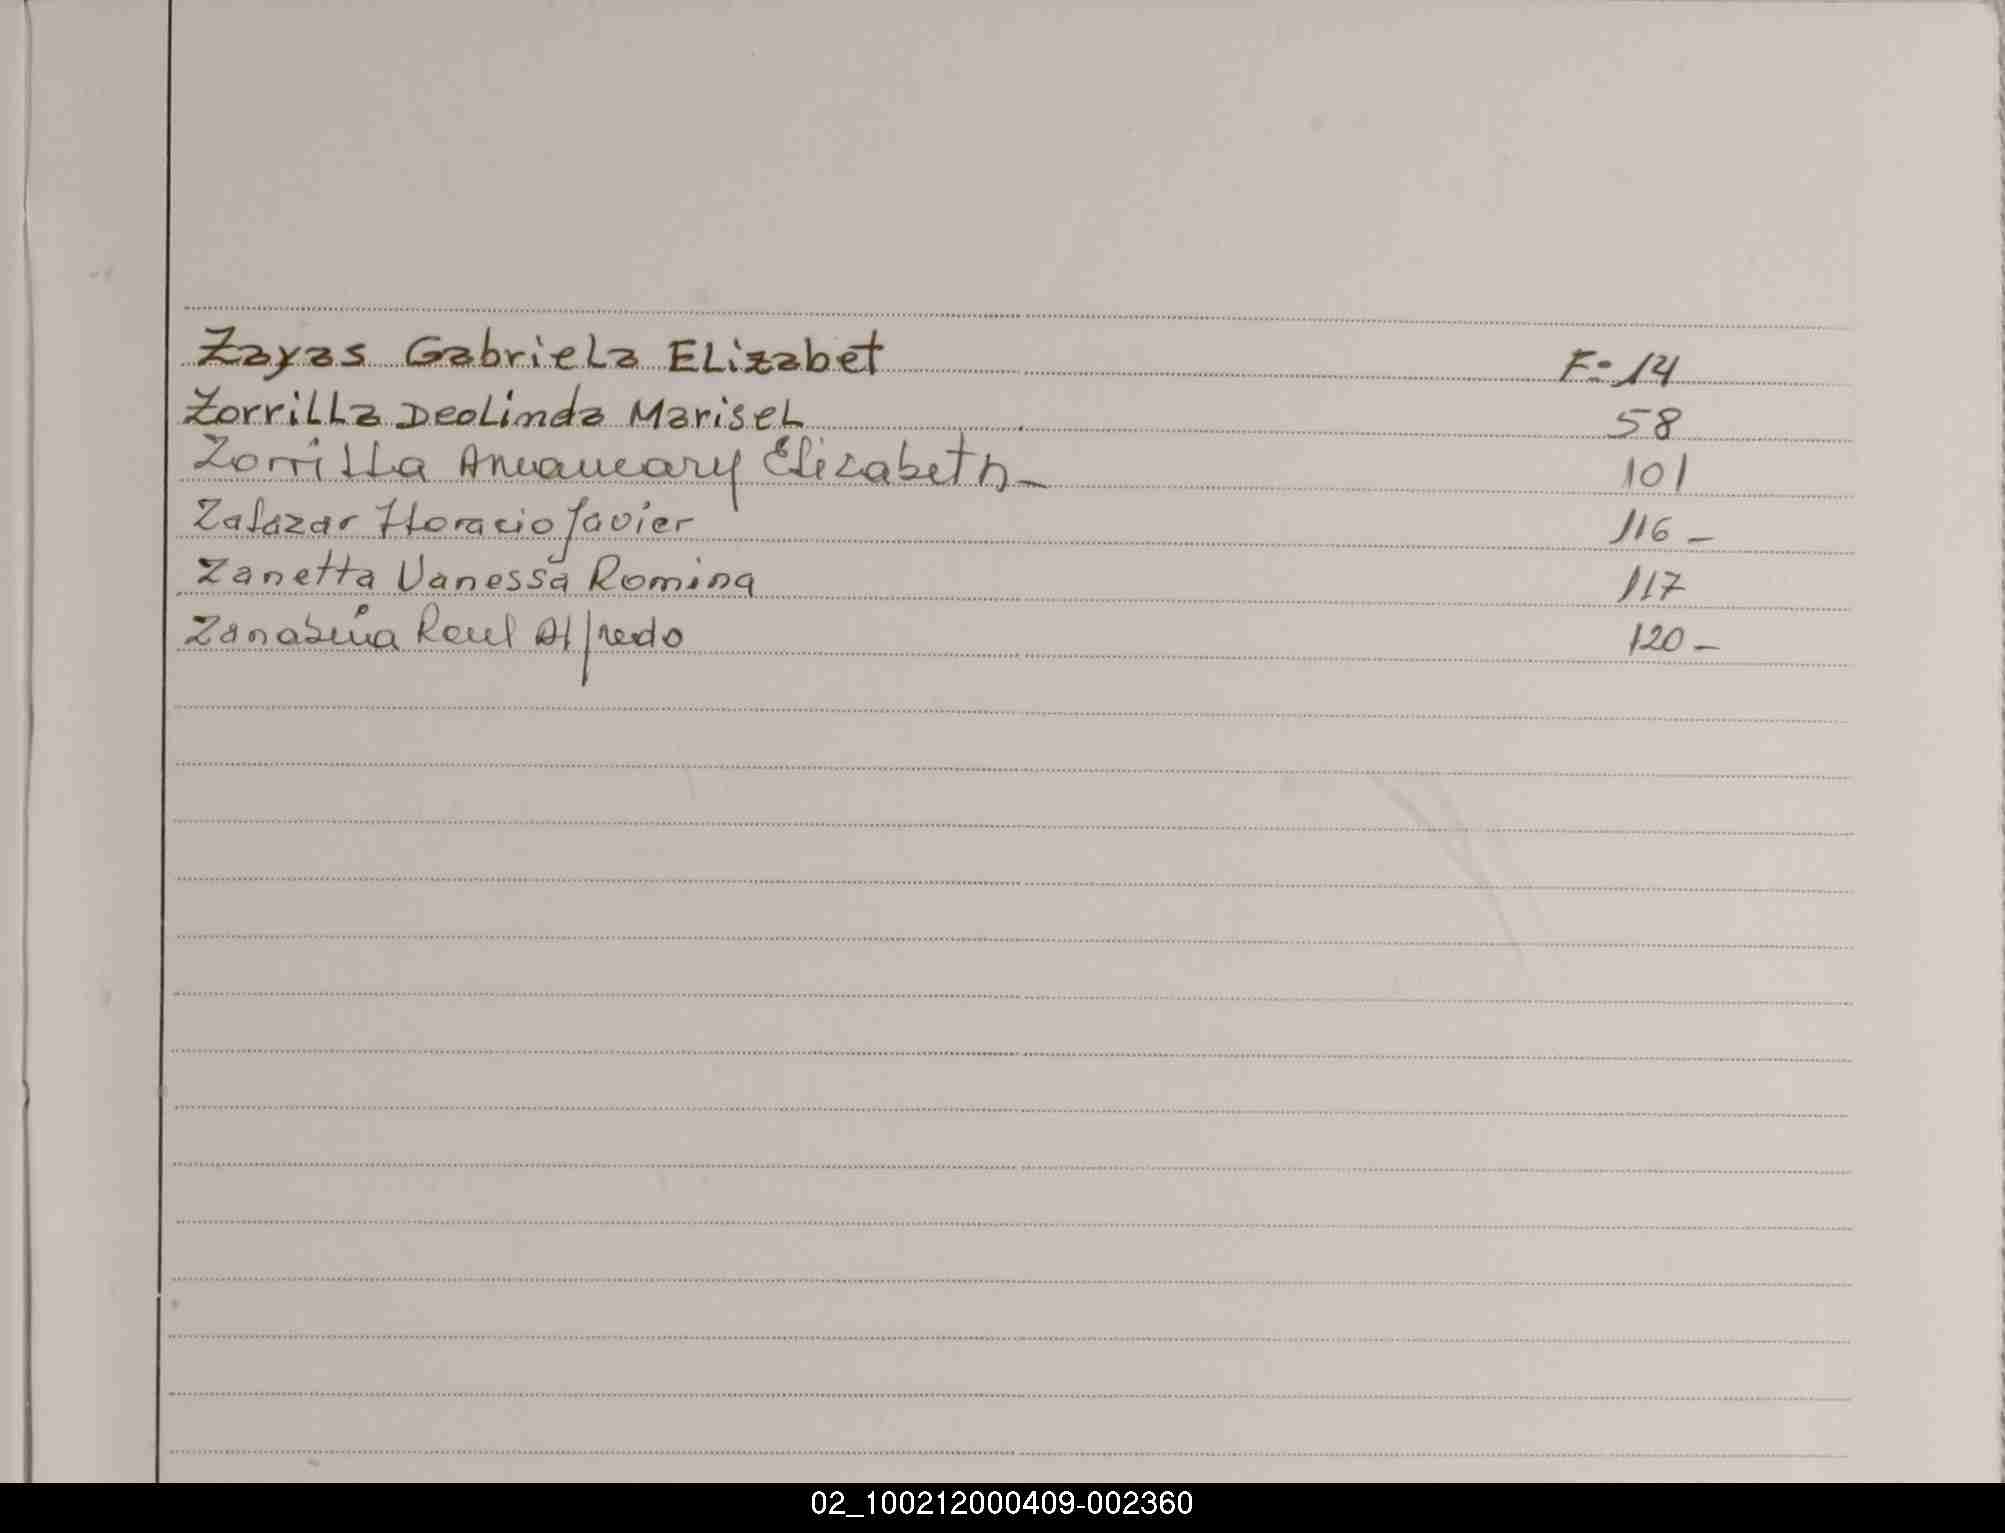 Zayas Gabriela Elizabet F= 14
Zorrilla Deolinda Marisel 58
Zorrilla Elizabeth - 101
Zalazar Horacio Javier 116 -
Zanetta Vanessa Romina 117
Zanabria Raul Alfredo 120 -
02_100212000409-002360